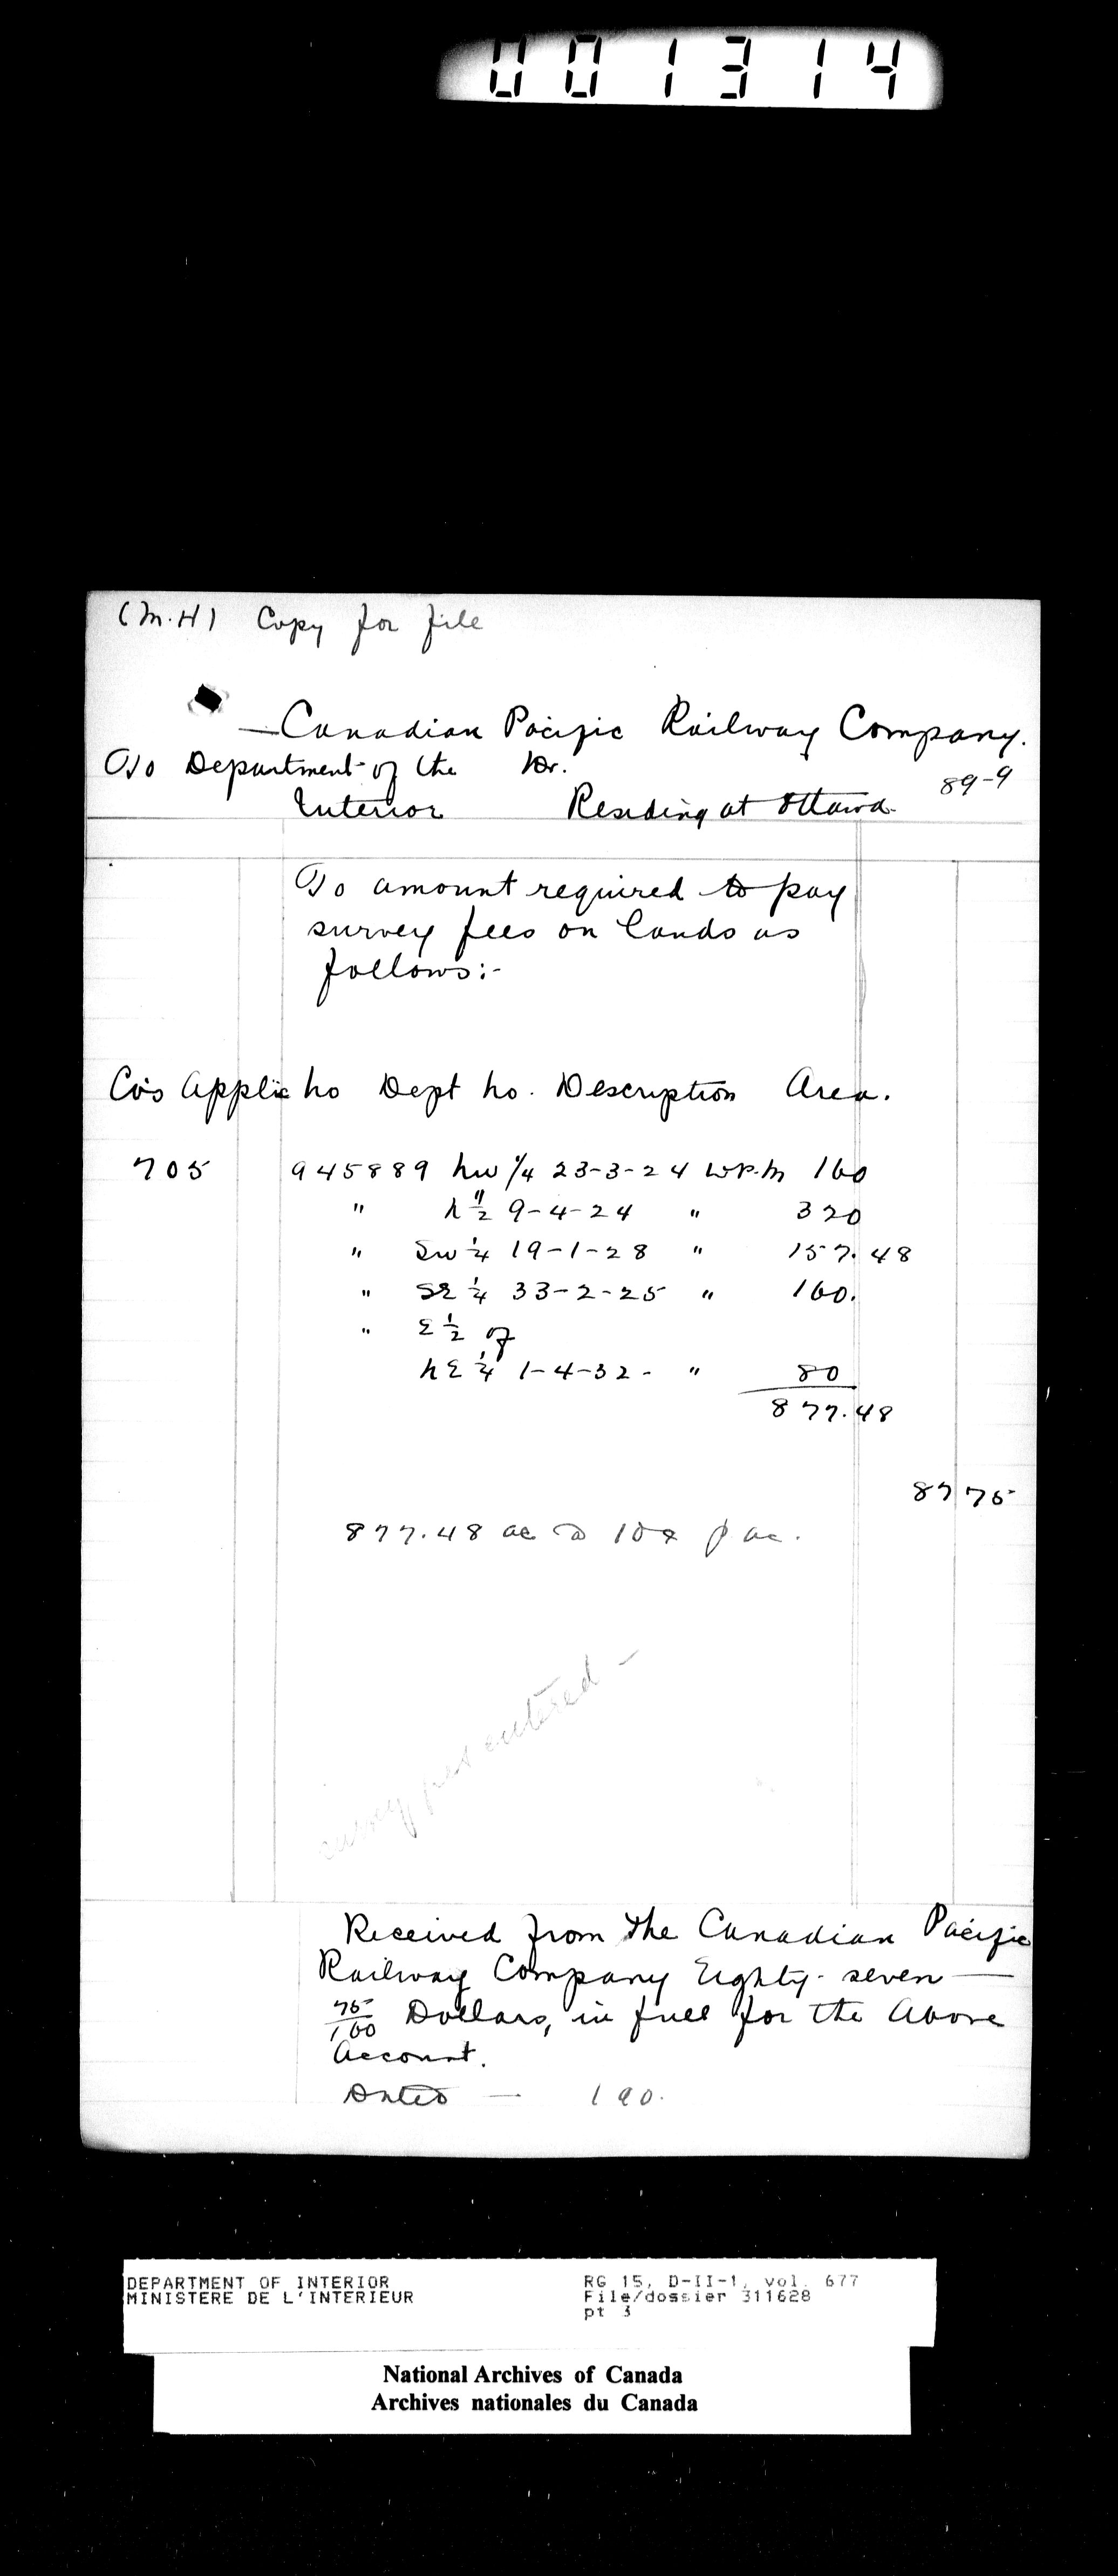 001314
(M.H) Copy for file
Canadian Pacific Railway Company.
To Department of the Dr.
89-9
Interior Residing at Ottawa
To amount required to pay
survey fees on lands as
follows:-
Co's Applic No Dept No. Description Area.
705 945889 NW 1/4 23-3-24 W.P.M 160
" N 1/2 9-4-24 " 320
" SW 1/4 19-1-28 " 157.48
" SE 1/4 33-2-25 " 160.
" E 1/2 of
NE 1/4 1-4-32 - " 80
877.48
87 75
877.48 ac @ 10¢ p ac.
entered -
Received from the Canadian Pacific
Railway Company Eighty-seven —
75/100 Dollars, in full for the above
account.
Dated — 190.
DEPARTMENT OF INTERIOR RG 15, D-II-1, vol. 677
MINISTERE DE L'INTERIEUR File/dossier 311628
pt 3
National Archives of Canada
Archives nationales du Canada